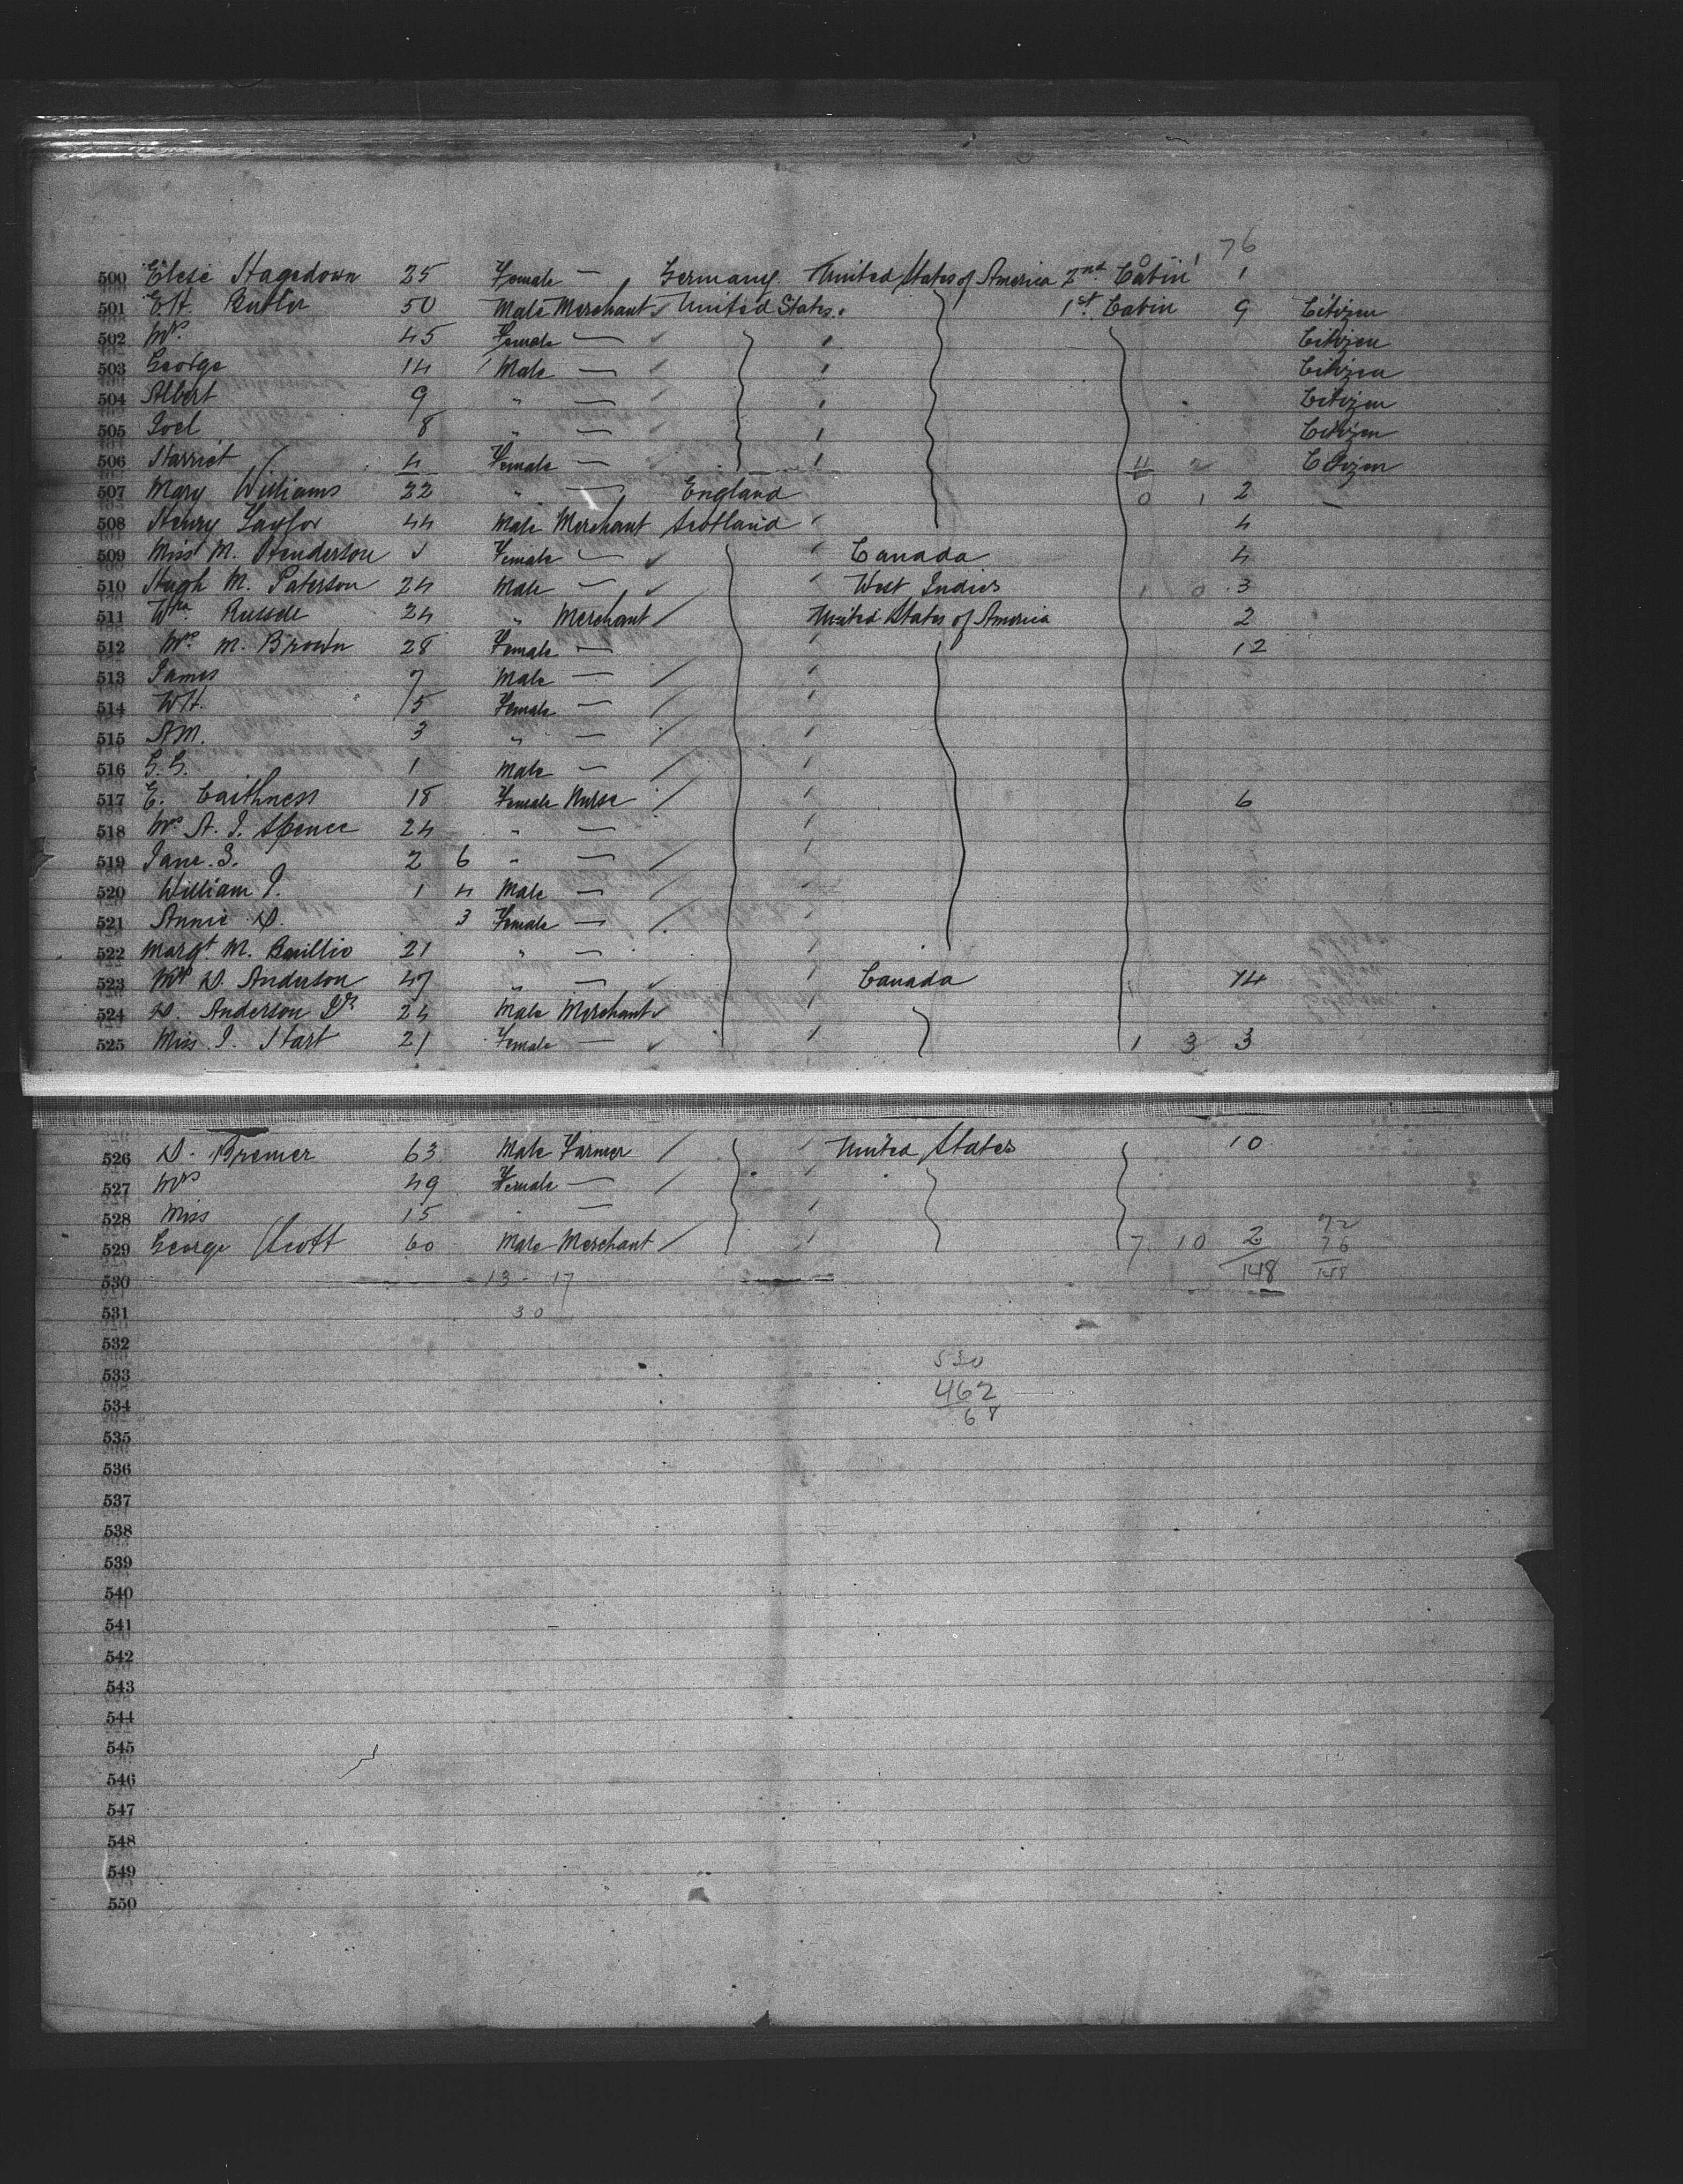 76
500 Elese Hagedown 25 Female — Germany United States of America 2nd Cabin 0 1 1
501 E.H. Butler 50 Male Merchant United States. 1st Cabin 9 Citizen
502 Mrs 45 Female — Citizen
503 George 14 Male — Citizen
504 Albert 9 " — Citizen
505 Joel 8 " — Citizen
506 Harriet 4 Female — 4 2 Citizen
507 Mary Williams 22 " — England 0 1 2 —
508 Henry Taylor 44 Male Merchant Scotland 4
509 Miss M. Henderson ✓ Female — Canada 4
510 Hugh M. Paterson 24 Male — West Indies 1 0 3
511 Wm Russell 24 " Merchant United States of America 2
512 Mrs M. Brown 28 Female — 12
513 James 7 Male —
514 WH. 5 Female —
515 AM. 3 " —
516 G.G. 1 Male —
517 E. Caithness 18 Female Nurse 6
518 Mrs A. J. Spence 24 " —
519 Jane. S. 2 6 " —
520 William J. 1 4 Male —
521 Annie D. 3 Female —
522 Margt M. 21 " —
523 Mrs D. Anderson 47 " — Canada 14
524 D. Anderson Jr 24 Male Merchant
525 Miss J. Hart 21 Female — 1 3 3
526 D. Bremer 63 Male Farmer United States 10
527 Mrs 49 Female —
528 Miss 15 " —
529 George Scott 60 Male Merchant 7 10 2 72
76
530 13 - 17 148 148
531 30
532
533 530
534 462
68
535
536
537
538
539
540
541
542
543
544
545
546
547
548
549
550